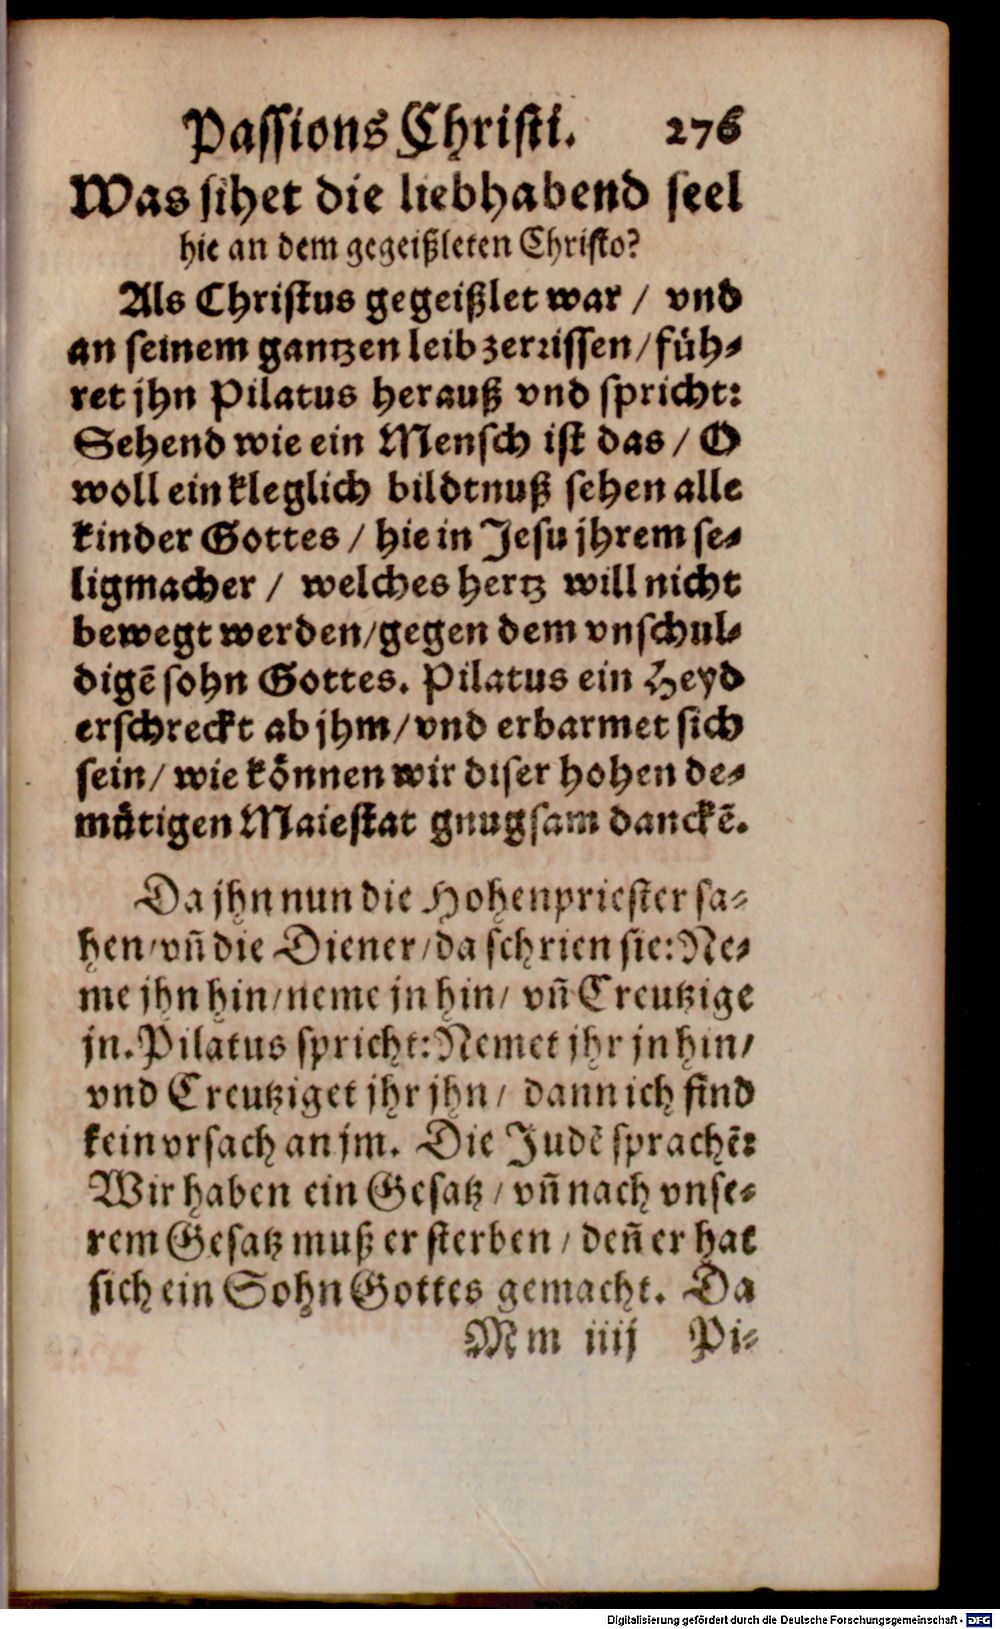 Passions Christi. 276
Was sihet die liebhabend seel
hie an dem gegeißleten Christo?
Als Christus gegeißlet war / vnd
an seinem gantzen leib zerrissen / füh-
ret jhn Pilatus herauß vnd spricht:
Sehend wie ein Mensch ist das / O
woll ein kleglich bildtnuß sehen alle
kinder Gottes / hie in Jesu jhrem se-
ligmacher / welches hertz will nicht
bewegt werden / gegen dem vnschul-
digē sohn Gottes. Pilatus ein Heyd
erschreckt ab jhm / vnd erbarmet sich
sein / wie können wir diser hohen de-
mütigen Maiestat gnugsam danckē.
Da jhn nun die Hohenpriester sa-
hen / vn̄ die Diener / da schrien sie: Ne-
me jhn hin / neme jn hin / vn̄ Creutzige
jn. Pilatus spricht: Nemet jhr jn hin /
vnd Creutziget jhr jhn / dann ich find
kein vrsach an jm. Die Judē sprachē:
Wir haben ein Gesatz / vn̄ nach vnse-
rem Gesatz muß er sterben / den̄ er hat
sich ein Sohn Gottes gemacht. Da
Mm iiij Pi-
Digitalisierung gefördert durch die Deutsche Forschungsgemeinschaft - DFG